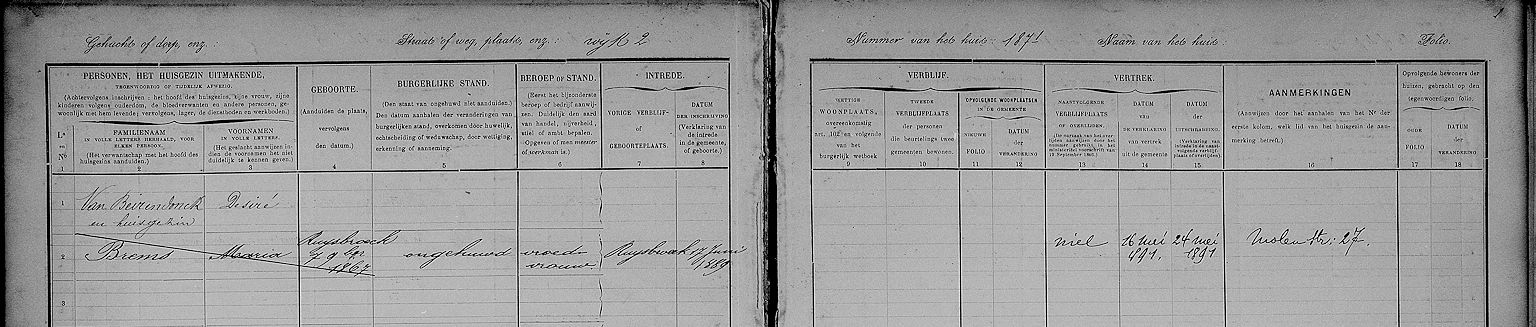 Gehucht of dorp, enz.: Straat of weg, plaats, enz.: wijk 2
PERSONEN, HET HUISGEZIN UITMAKENDE,
TEGENWOORDIG OF TIJDELIJK AFWEZIG.
(Achtervolgens inschrijven: het hoofd des huisgezins, zijne vrouw, zijne
kinderen volgens ouderdom, de bloedverwanten en andere personen, ge-
woonlijk met hem levende; vervolgens, lager, de dienstboden en werkboden.)
Ls en No
FAMILIENAAM
IN VOLLE LETTERS HERHAALD, VOOR
ELKEN PERSOON.
(Het verwantschap met het hoofd des
huisgezins aanduiden.)
VOORNAMEN
IN VOLLE LETTERS.
(Het geslacht aanwijzen in-
dien de voornamen het niet
duidelijk te kennen geven.)
GEBOORTE.
Aanduiden de plaats,
vervolgens
den datum.)
BURGERLIJKE STAND.
(Den staat van ongehuwd niet aanduiden.)
Den datum aanhalen der veranderingen van
burgerlijken stand, overkomen door huwelijk,
echtscheiding of weduwschap, door wettiging,
erkenning of aanneming.
BEROEP OF STAND.
(Eerst het bijzonderste
beroep of bedrijf aanwij-
zen. Duidelijk den aard
van handel, nijverheid,
stiel of ambt bepalen.
Opgeven of men meester
of werkman is.)
INTREDE.
VORIGE VERBLIJF-
of
GEBOORTEPLAATS.
DATUM
DER INSCHRIJVING
(Verklaring van
de intrede
in de gemeente,
of geboorte.)
1 2 3 4 5 6 7 8
1 Van Beirendonck Desiré
en huisgezin
2 Brems Maria Ruysbroeck
1867 ongehuwd vroed-
vrouw Ruysbroeck 17 Juni
1889
3
Nummer van het huis: 187 Naam van het huis: Folio.
VERBLIJF.
WETTIGE
WOONPLAATS,
overeenkomstig
art. 102 en volgende
van het
burgerlijk wetboek
TWEEDE
VERBLIJFPLAATS
der personen
die beurtelings twee
gemeenten bewonen.
OPVOLGENDE WOONPLAATSEN
IN DE GEMEENTE
NIEUWE
FOLIO
DATUM
der
VERANDERING
VERTREK.
NAASTVOLGENDE
VERBLIJFPLAATS
OF OVERLIJDEN.
DATUM
van
DE VERKLARING
van vertrek
uit de gemeente
DATUM
der
UITSCHRIJVING.
(Verklaring van
intrede in de naast-
volgende verblijf-
plaats of overlijden).
AANMERKINGEN
(Aanwijzen door het aanhalen van het Nr der
eerste kolom, welk lid van het huisgezin de aan-
merking betreft.)
Opvolgende bewoners der
huizen, gebracht op den
tegenwoordigen folio.
OUDE
FOLIO
DATUM
der
VERANDERING
9 10 11 12 13 14 15 16 17 18
niel 16 mei
891. 24 mei
1891 Molenstr: 27.